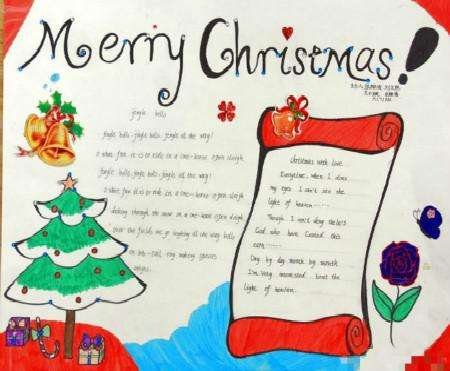 Merry Christmas!
jingle bells
jingle bells jingle bells jingle all the way!
O what fun it is to ride in a one-horse open sleigh
jingle bells jingle bells jingle all the way!
O what fun it is to ride in a one-horse open sleigh
dashing through the snow in a one-horse open sleigh
over the fields we go laughing all the way bells
on bob-tail ring making spirits
bright
Christmas with love
Everytime when I close
my eyes I can't see the
light of heaven
Though I can't
God who have Created this
Day by day month by month
I'm very interested
light of heaven